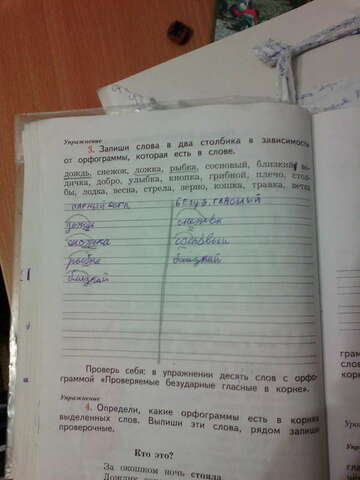 Упражнение
3. Запиши слова в два столбика в зависимости
от орфограммы, которая есть в слове.
дождь, снежок, ложка, рыбка, сосновый, близкий, во-
дичка, добро, улыбка, кнопка, грибной, плечо, стол-
бы, лодка, весна, стрела, верно, кошка, травка, ветка
парный согл. безуд. гласный
дождь снежок
ложка сосновый
рыбка близкий
близкий
Проверь себя: в упражнении десять слов с орфо-
граммой «Проверяемые безударные гласные в корне».
Упражнение
4. Определи, какие орфограммы есть в корнях
выделенных слов. Выпиши эти слова, рядом запиши
проверочные.
Кто это?
За окошком ночь стояла